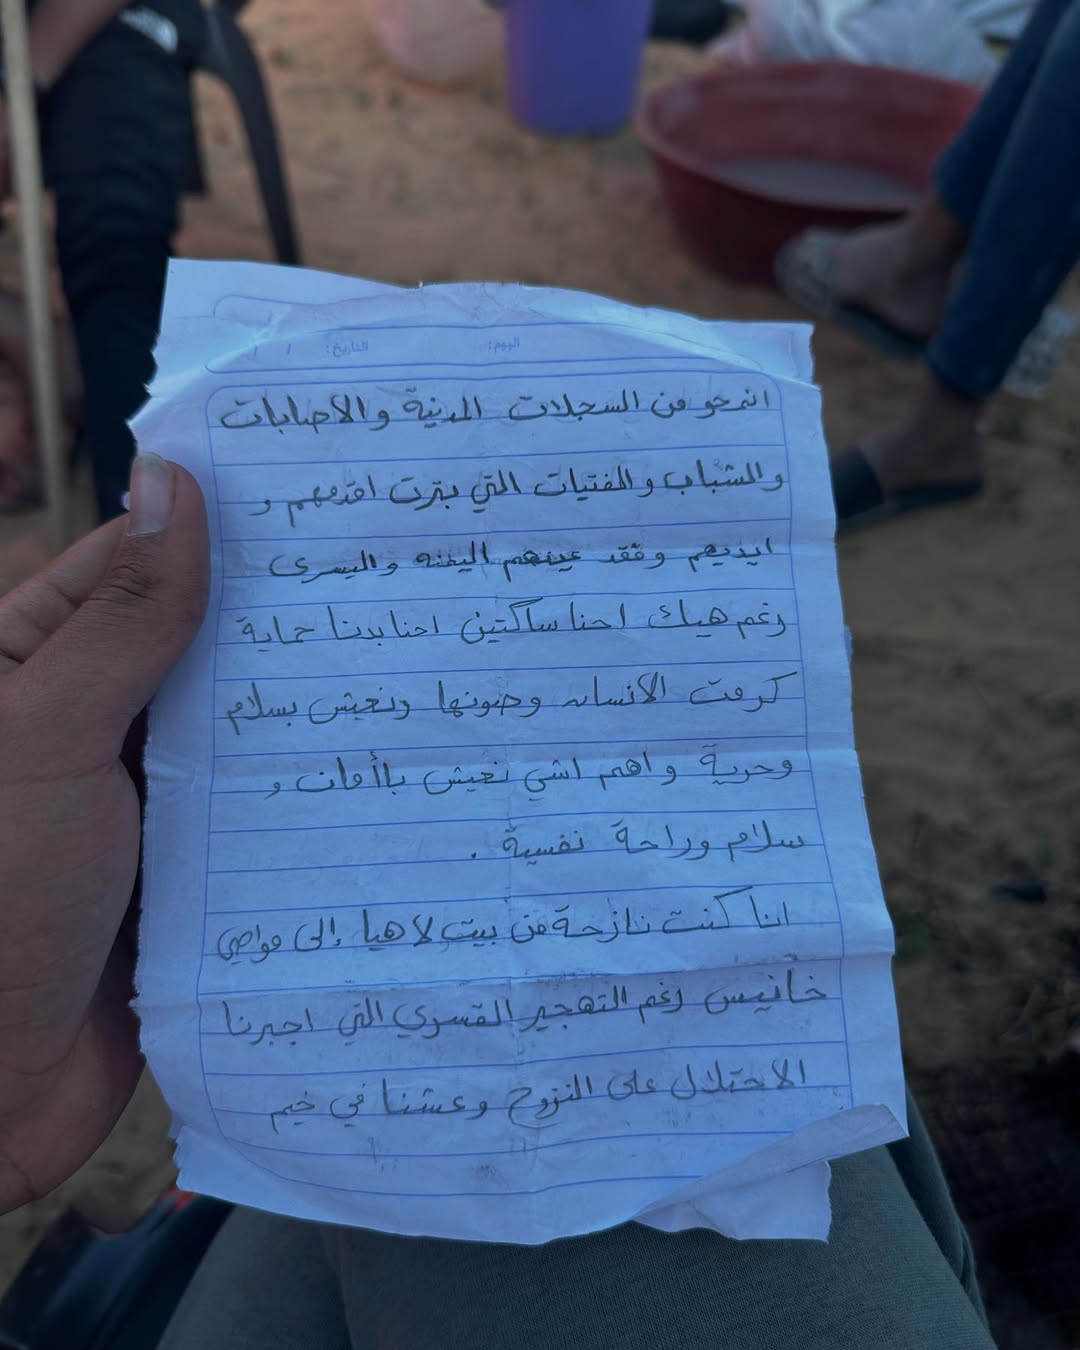 اليوم: التاريخ: / /
انمحو من السجلات المدنية والاصابات
والشباب والفتيات التي بترت اقدمهم و
ايديهم وفقد عينهم اليمنه واليسرى
رغم هيك احنا ساكتين احنا بدنا حماية
كرمت الانسان وصونها ونعيش بسلام
وحرية واهم اشي نعيش باأمان و
سلام وراحة نفسية .
انا كنت نازحة من بيت لاهيا إلى مواصي
خانيس رغم التهجير القسري التي اجبرنا
الاحتلال على النزوح وعشنا في خيم